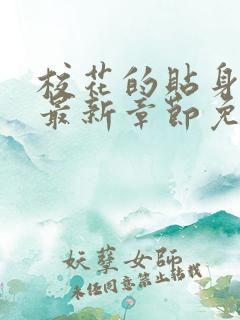 校花的貼身
最新章節免
妖孽女師
未经同意禁止转载